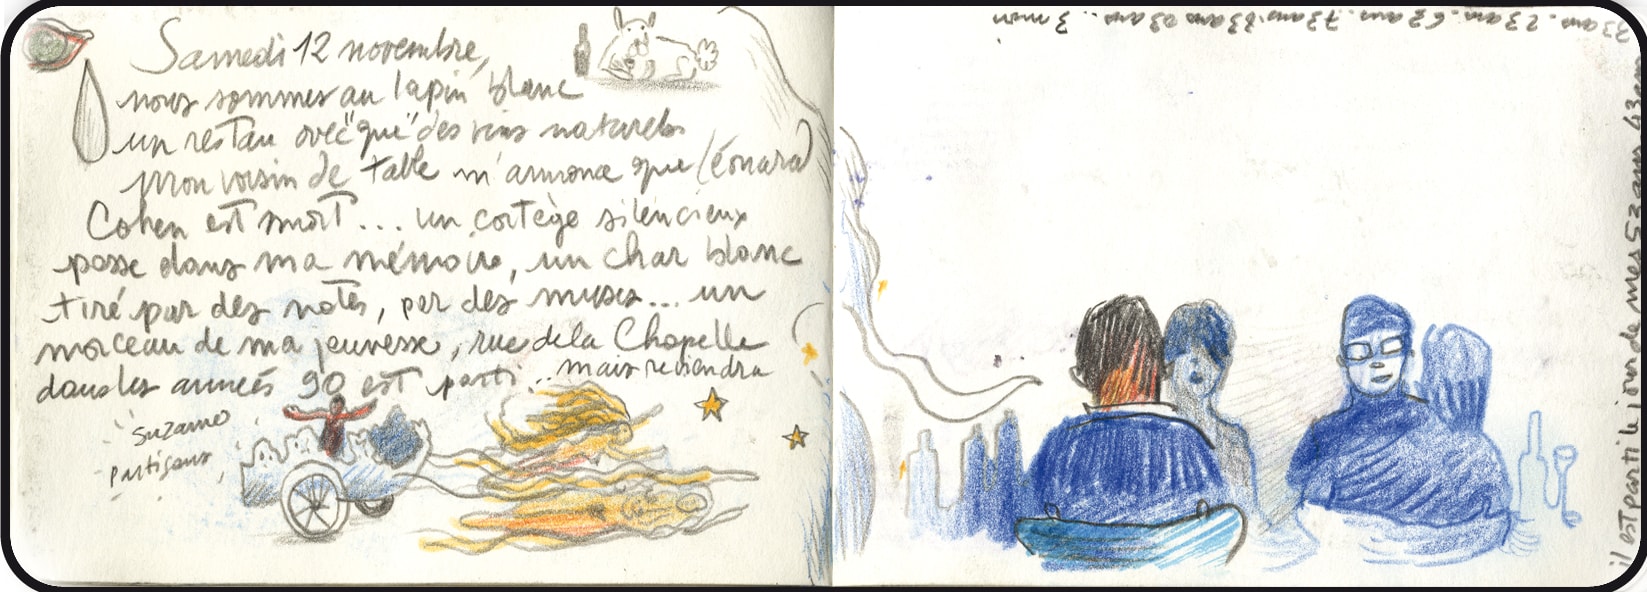 Samedi 12 novembre,
nous sommes au lapin blanc
un restau avec "que" des vins naturels
Mon voisin de table m'annonce que Léonard
Cohen est mort... un cortège silencieux
passe dans ma mémoire, un char blanc
tiré par des notes, par des muses... un
morceau de ma jeunesse, rue de la Chapelle
dans les années 90 est parti... mais reviendra
Suzanne
partisans
il est parti le jour de mes 53 ans, 43 ans
33 ans. 23 ans. 63 ans. 73 ans. 83 ans 93 ans... 3 mois